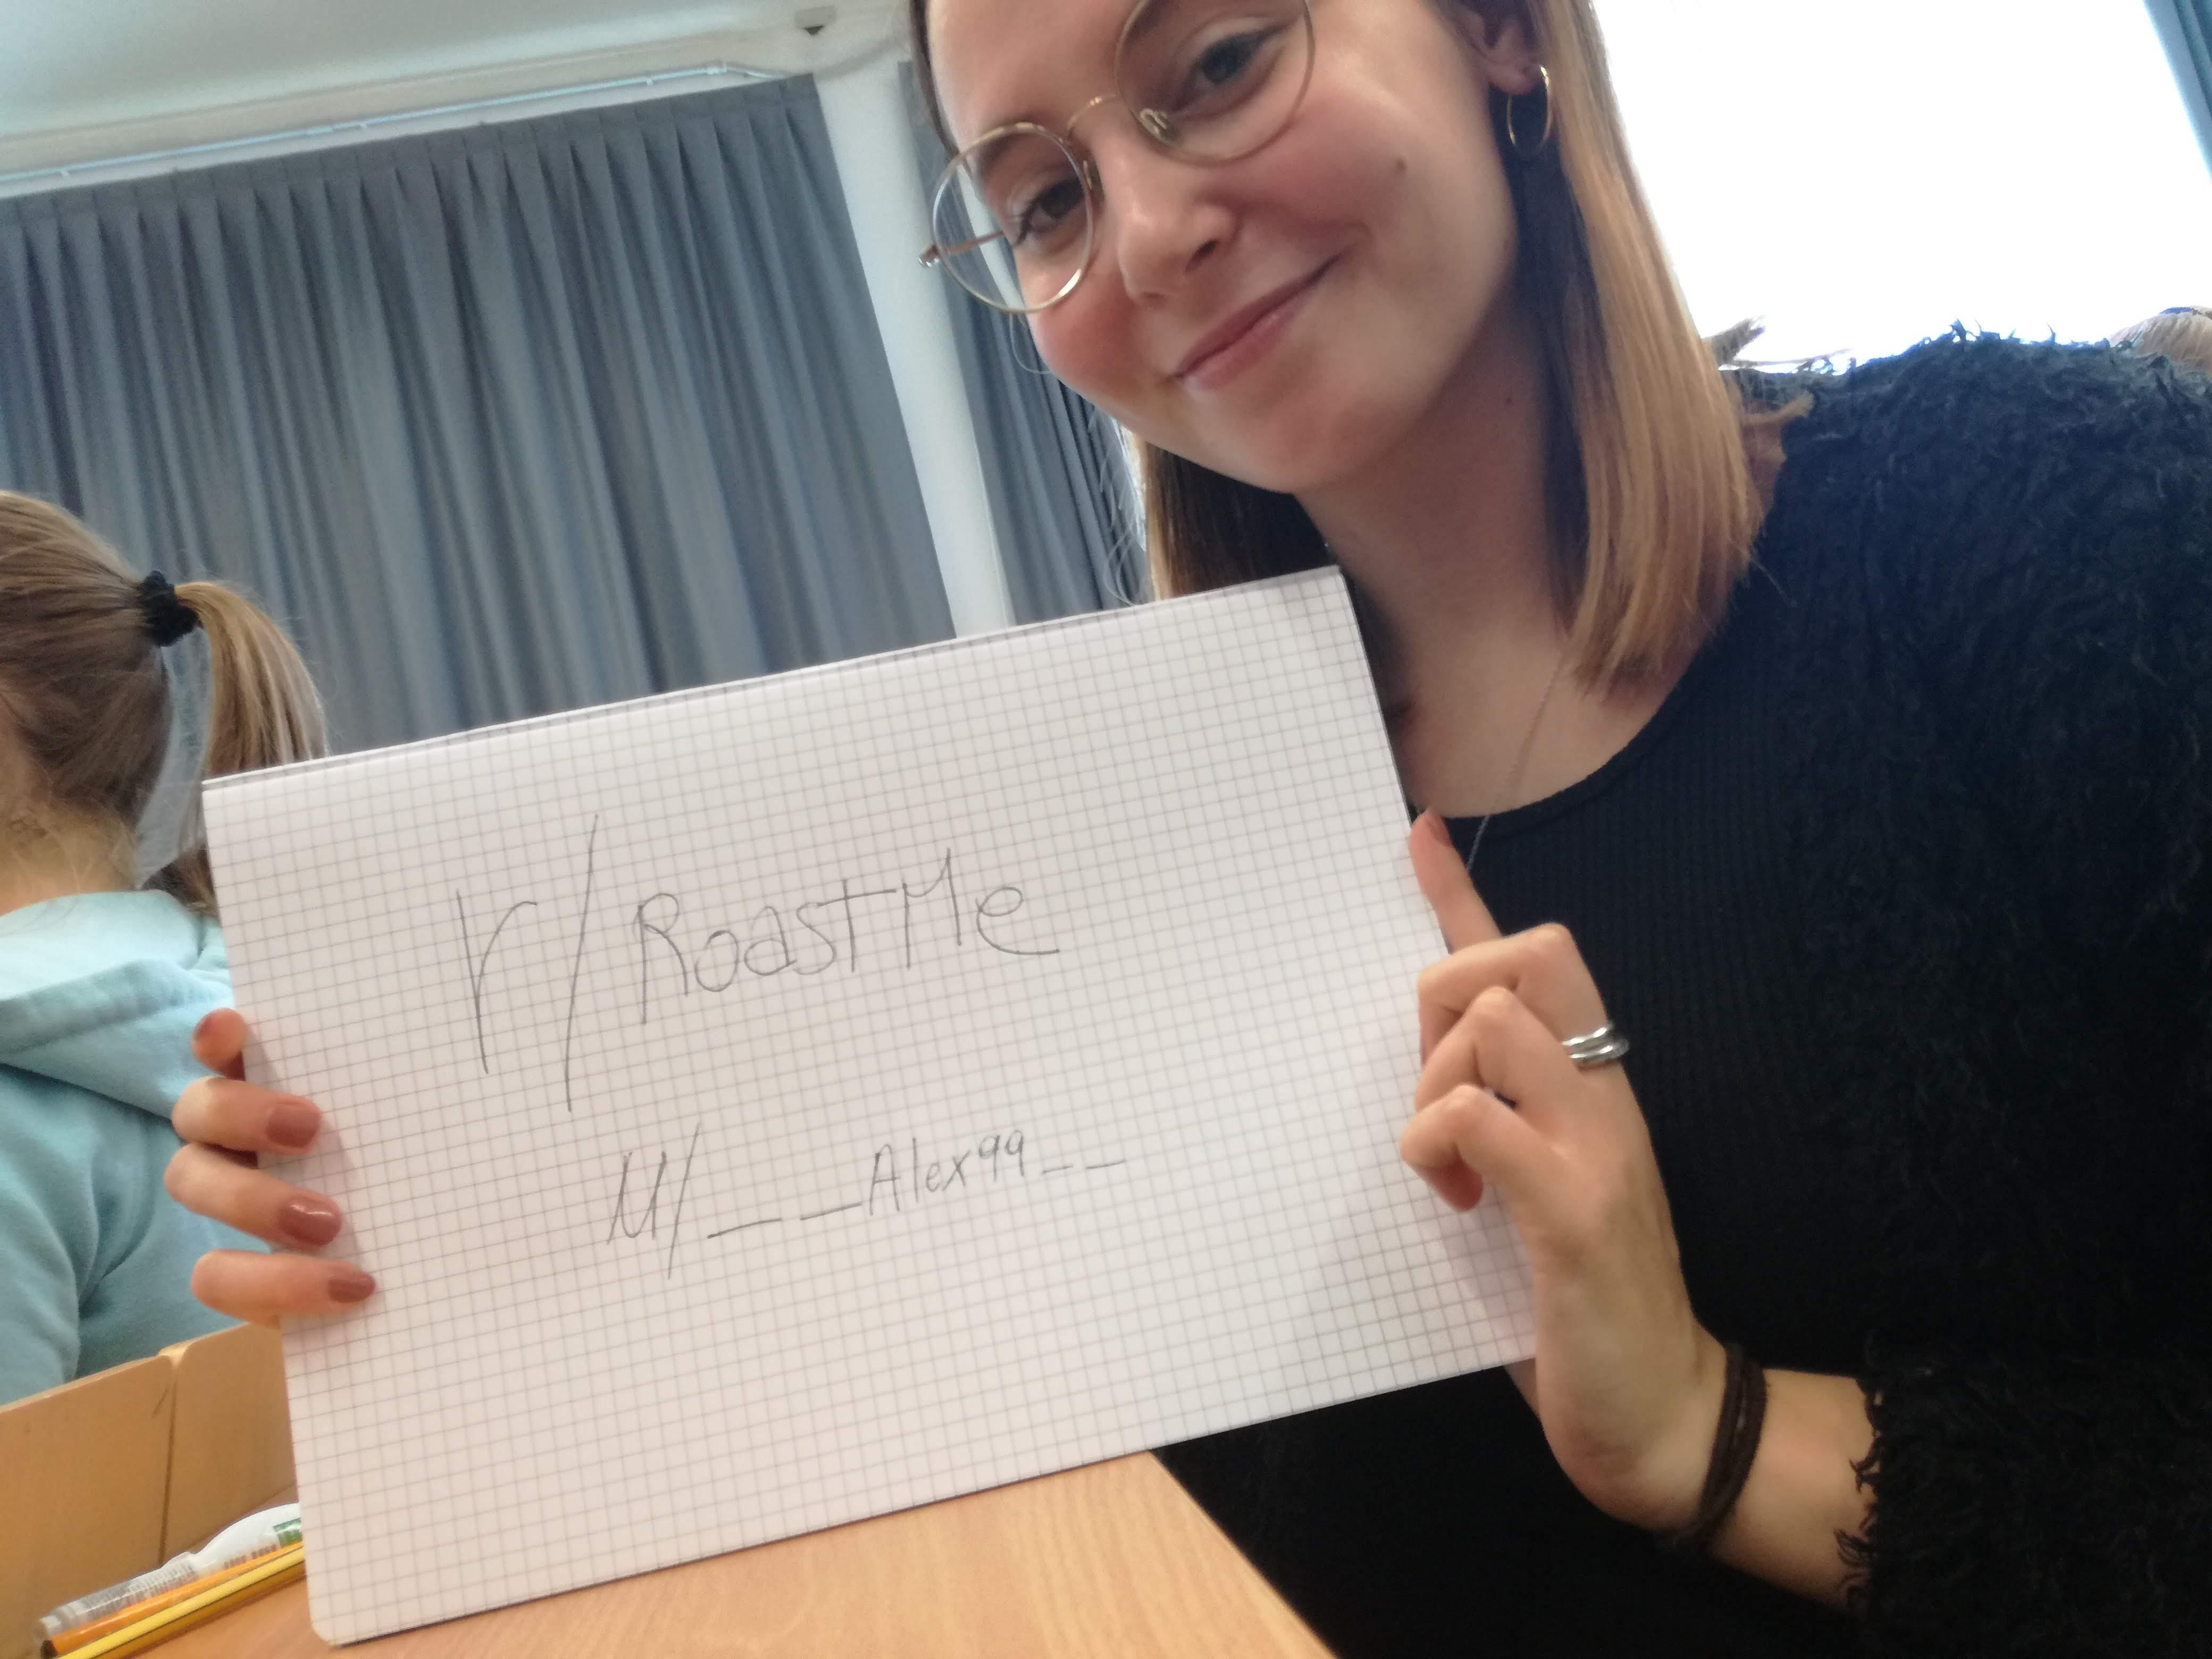 r/RoastMe
u/___Alex99__